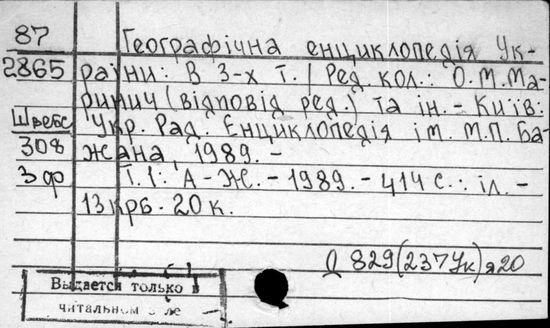 87 Географічна енциклопедія Ук-
2865 раїни: В 3-х т. / Ред. кол.: О.М.Ма-
ринич (відповід ред.) та ін. - Київ:
Швебс Укр. Рад. Енциклопедія ім. М.П. Ба-
308 жана, 1989. -
3 ф Т.1: А - Ж. - 1989. - 414 с.: іл. -
13 крб. 20 к.
Д 829(237Ук)я20
Выдается только в
читальном